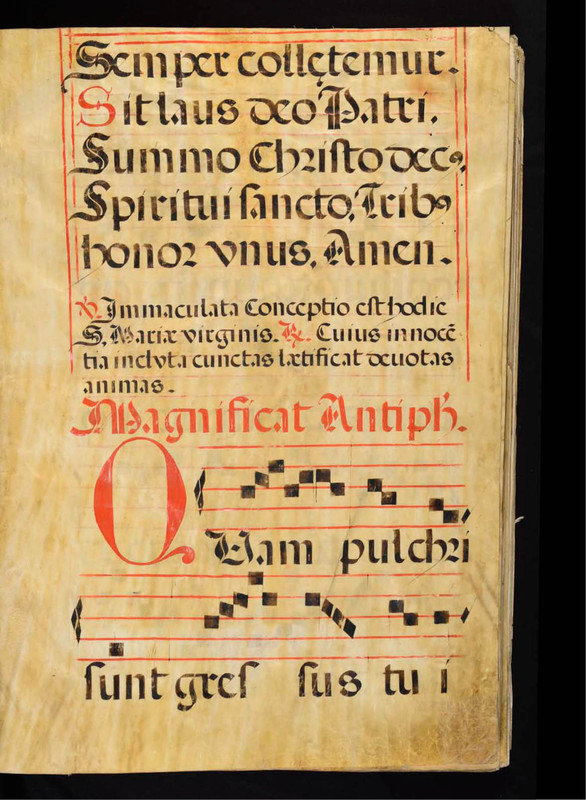 Semper collętemur.
Sit laus deo Patri,
Summo Christo decꝰ,
Spiritui sancto, Tribꝰ
honor vnus, Amen.
℣. Immaculata Conceptio est hodie
S. Mariæ virginis. ℟. Cuius innocē
tia inclyta cunctas lætificat deuotas
animas.
Magnificat Antiph.
QUam pulchri
sunt gres sus tu i